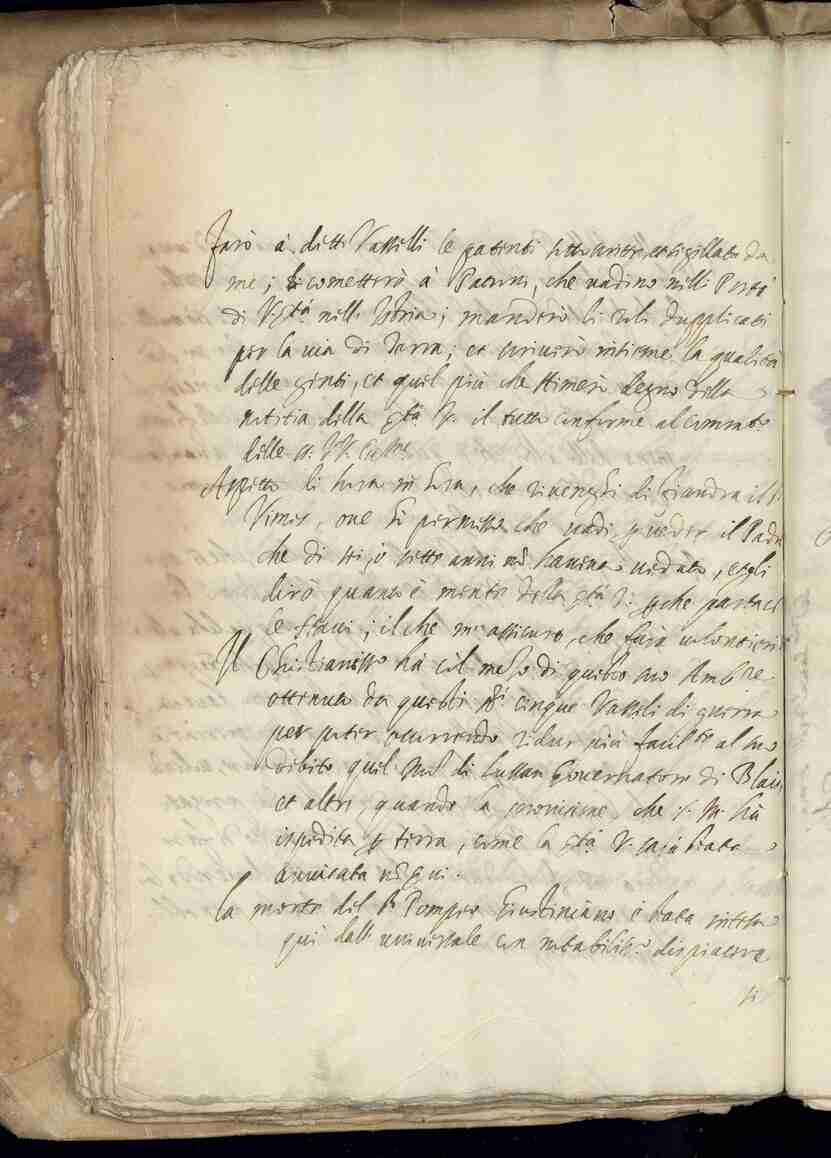 farò à detti Vasselli le patenti sottoscritte, et sigillate da
me; li cometterò à Patroni, che vadino nelli Porti
di V. Stà nell'Istria; manderò li roli dupplicati
per la via di terra; et scriverò insieme la qualità
delle genti, et quel più che stimerò degno della
notitia della Stà V. il tutto conforme al comand.to
delle SS. VV. Ecc.me
Aspetto li hora in hora, che di Fiandra il S.r
Vimes, ove hò permesso che vadi, p veder il Padre
che di sei, ò sette anni nò haveva veduto, et gli
dirò quanto è mente della Stà V. che
; il che m'assicuro, che farà volontieri
Il Christianiss.o hà col mezo di questo suo Amb.re
ottenuto da questi SS.ri cinque Vasselli di guerra
per poter occorrendo ridur più facil.te al suo
debito quel Mons.r di Lussan Governatore di Blaie
et altri, quando la provisione, che S. M. hà
ispedita p terra, come la Stà V. sarà stata
avvisata
La morte del S.r Pompeo Giustiniano è stata intesa
quì dall'universale con notabiliss.o dispiacere